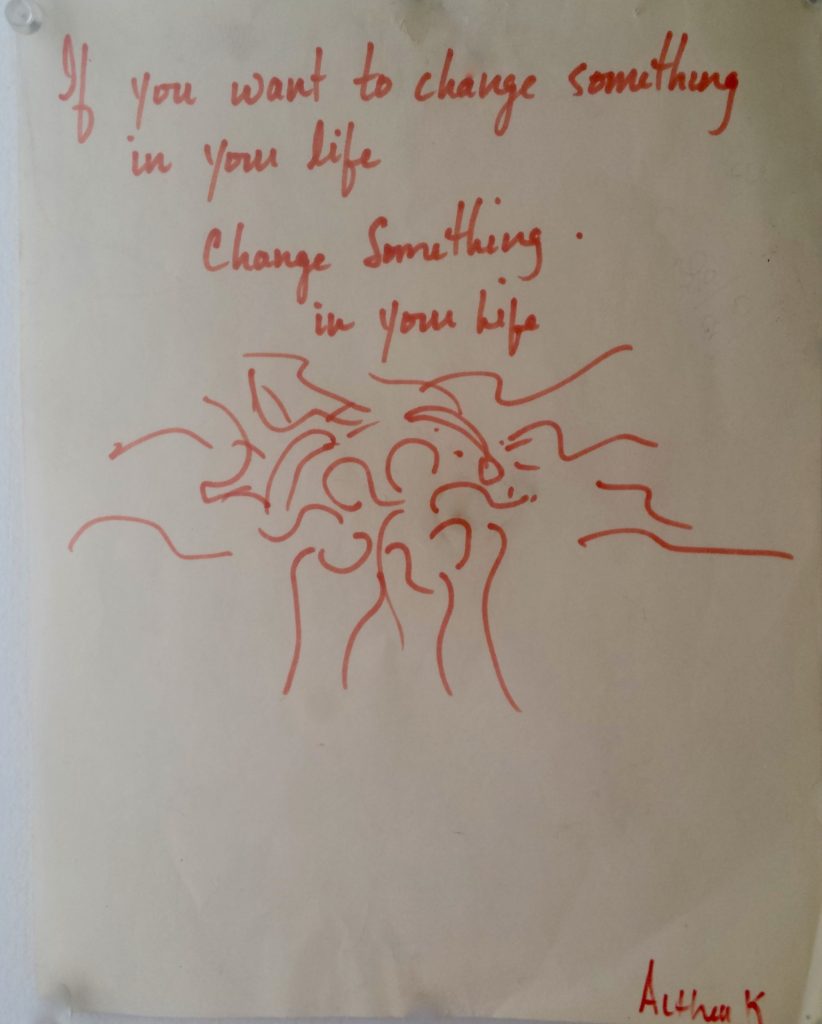 If you want to change something
in your life
Change Something.
in your life
Althea K